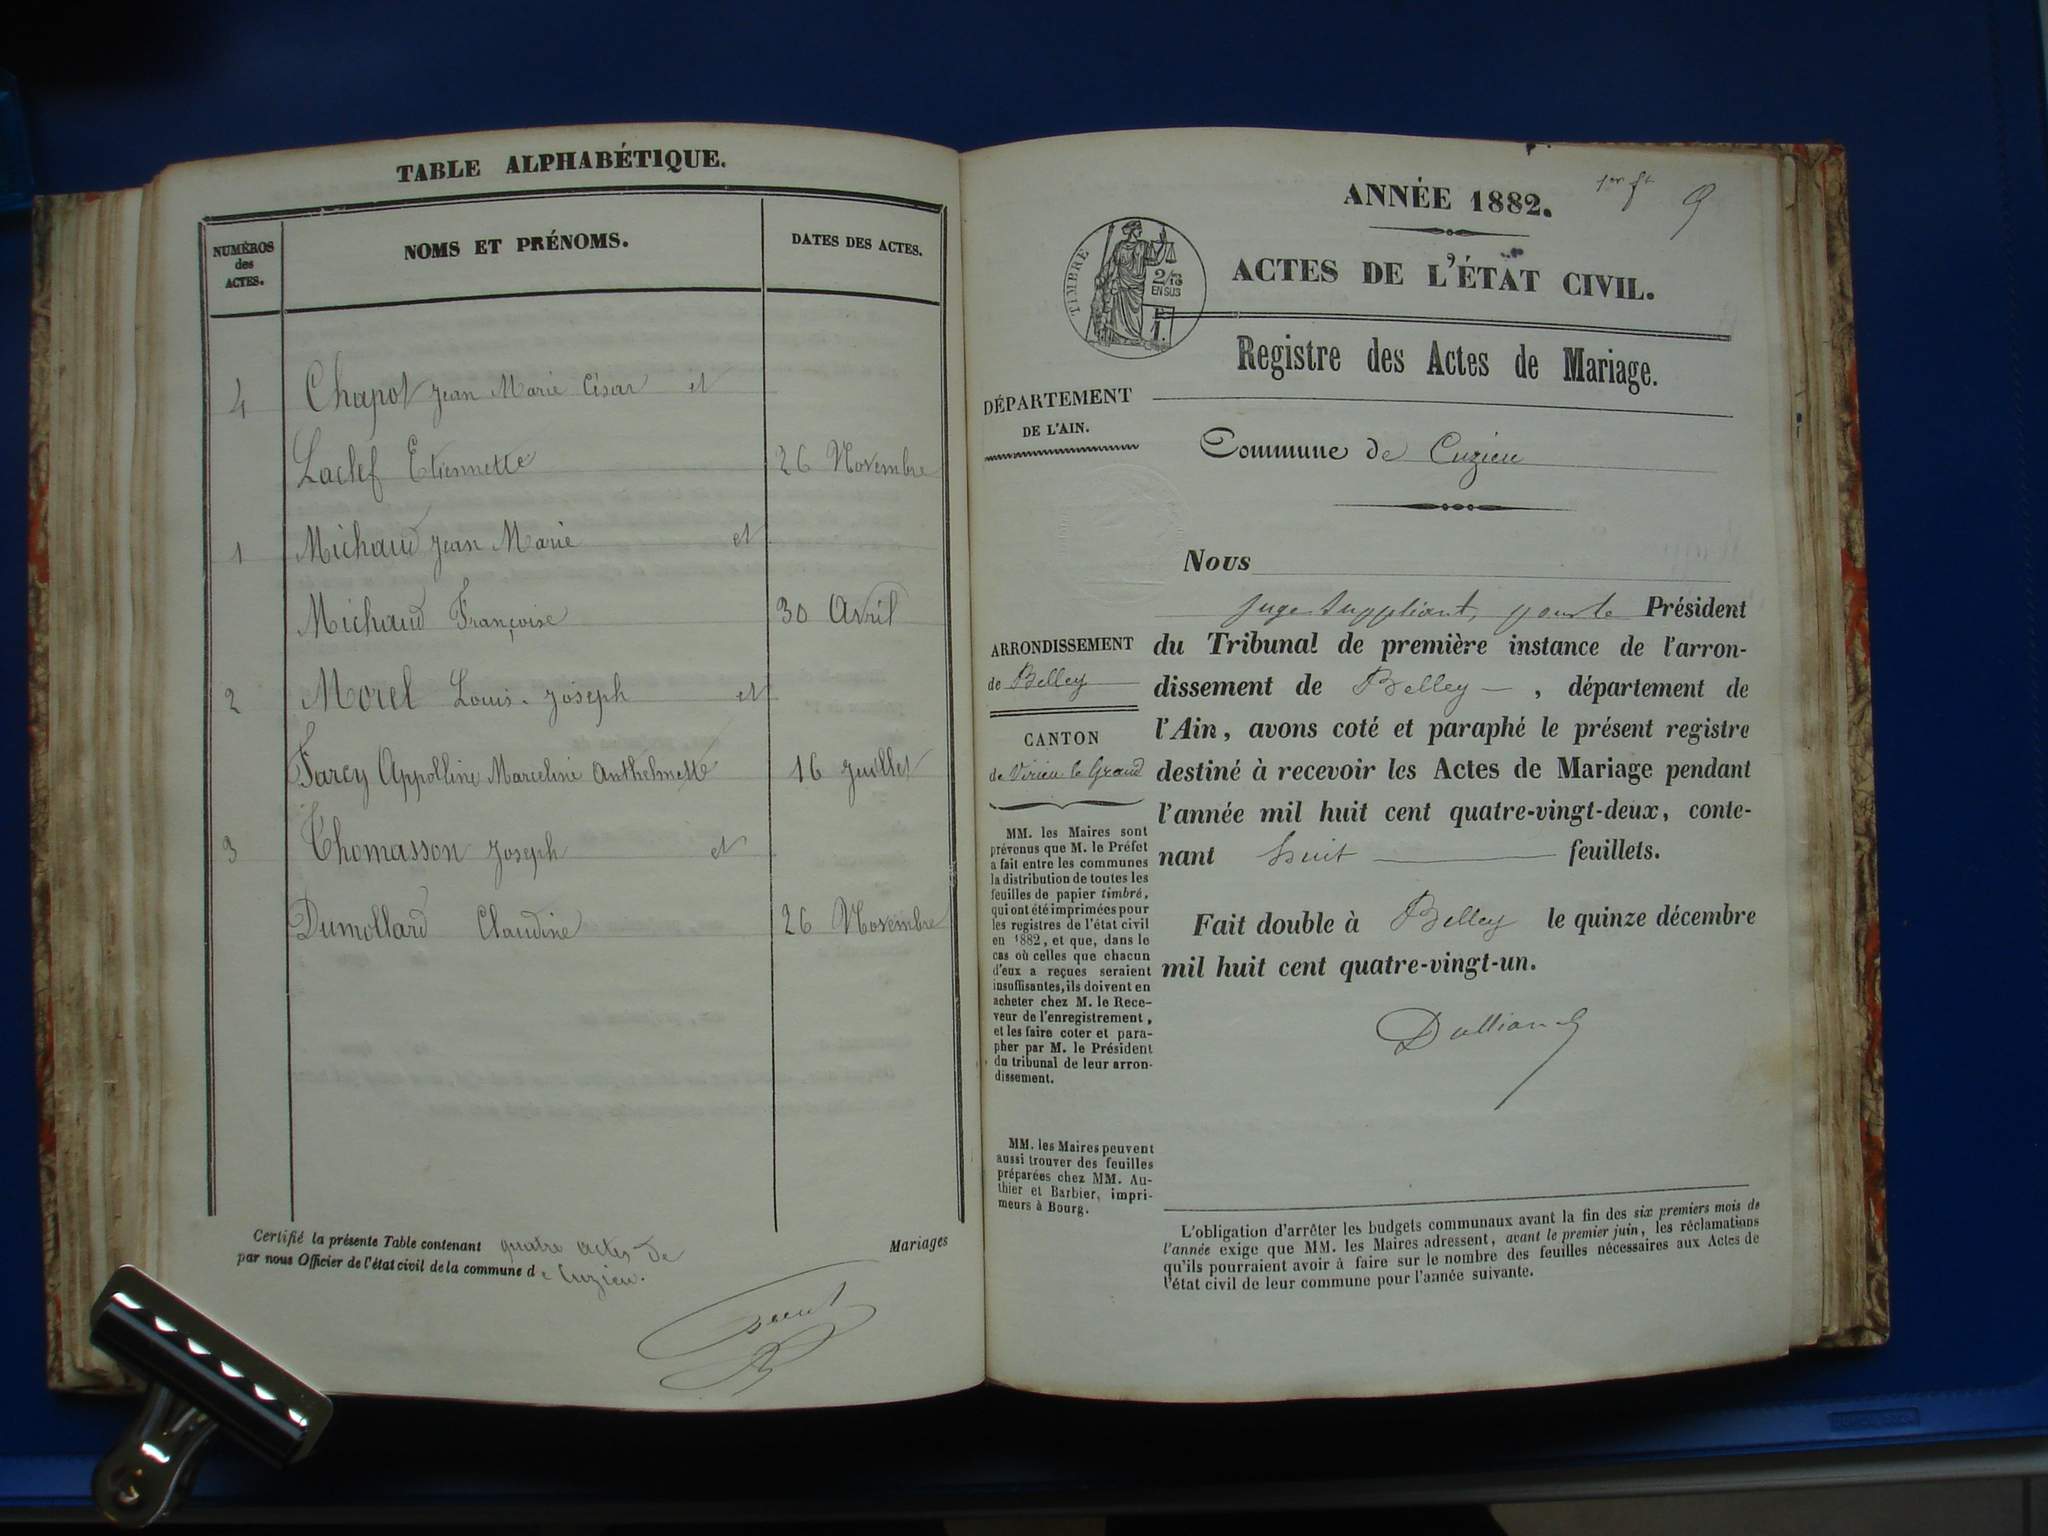 TABLE ALPHABÉTIQUE.
NUMÉROS
des
ACTES.
NOMS ET PRÉNOMS.
DATES DES ACTES.
4 Chapot Jean Marie César et
Laclef Etiennette 26 Novembre
1 Michaud Jean Marie et
Michaud Françoise 30 Avril
2 Morel Louis-Joseph et
Farcy Appolline Marceline Anthelmette 16 Juillet
3 Thomasson Joseph et
Dumollard Claudine 26 Novembre
Certifié la présente Table contenant quatre actes de Mariages
par nous Officier de l'état civil de la commune de Cuzieu.
1er ft 9
ANNÉE 1882.
TIMBRE
2/10
EN SUS
1.
ACTES DE L'ÉTAT CIVIL.
Registre des Actes de Mariage.
DÉPARTEMENT
DE L'AIN.
Commune de Cuzieu
ARRONDISSEMENT
de Belley
CANTON
de Virieu le Grand
MM. les Maires sont
prévenus que M. le Préfet
a fait entre les communes
la distribution de toutes les
feuilles de papier timbré,
qui ont été imprimées pour
les registres de l'état civil
en 1882, et que, dans le
cas où celles que chacun
d'eux a reçues seraient
insuffisantes, ils doivent en
acheter chez M. le Rece-
veur de l'enregistrement,
et les faire coter et para-
pher par M. le Président
du tribunal de leur arron-
dissement.
MM. les Maires peuvent
aussi trouver des feuilles
préparées chez MM. Au-
thier et Barbier, impri-
meurs à Bourg.
Nous
juge suppléant, pour le Président
du Tribunal de première instance de l'arron-
dissement de Belley, département de
l'Ain, avons coté et paraphé le présent registre
destiné à recevoir les Actes de Mariage pendant
l'année mil huit cent quatre-vingt-deux, conte-
nant huit feuillets.
Fait double à Belley le quinze décembre
mil huit cent quatre-vingt-un.
L'obligation d'arrêter les budgets communaux avant la fin des six premiers mois de
l'année exige que MM. les Maires adressent, avant le premier juin, les réclamations
qu'ils pourraient avoir à faire sur le nombre des feuilles nécessaires aux Actes de
l'état civil de leur commune pour l'année suivante.